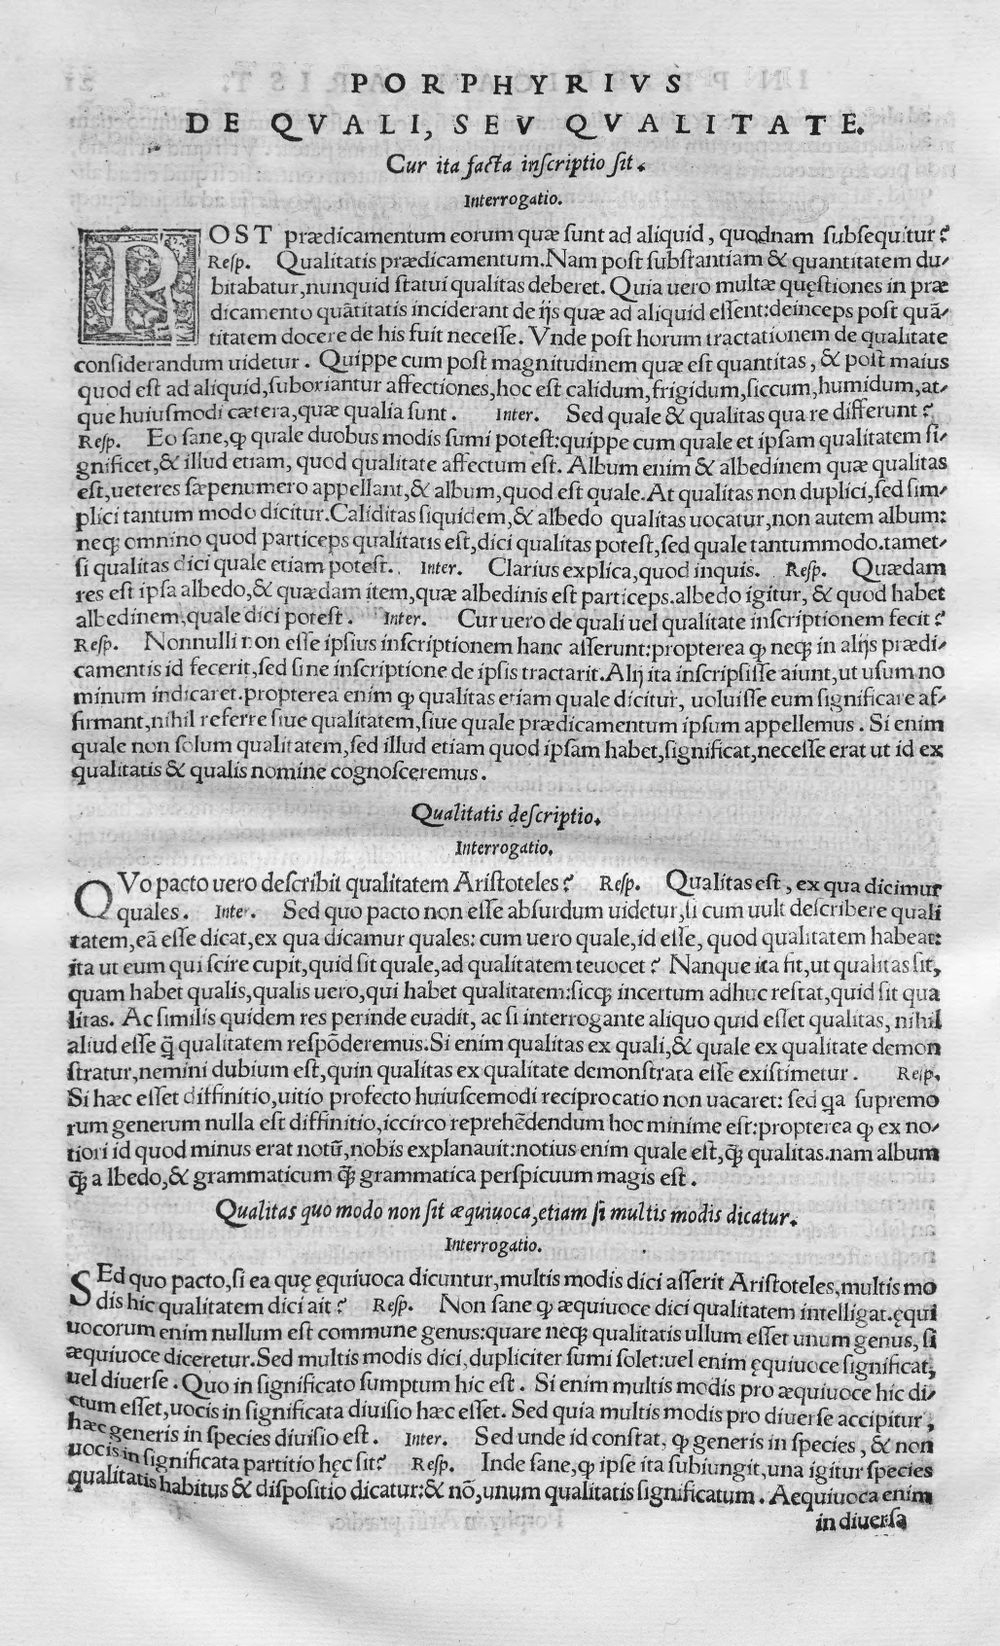 PORPHYRIVS
DE QVALI, SEV QVALITATE.
Cur ita facta inſcriptio ſit.
Interrogatio.
POST prædicamentum eorum quæ ſunt ad aliquid, quodnam ſubſequitur?
Reſp. Qualitatis prædicamentum. Nam poſt ſubſtantiam & quantitatem du-
bitabatur, nunquid ſtatui qualitas deberet. Quia uero multæ quęſtiones in præ
dicamento quãtitatis inciderant de ijs quæ ad aliquid eſſent: deinceps poſt quã-
titatem docere de his fuit neceſſe. Vnde poſt horum tractationem de qualitate
conſiderandum uidetur. Quippe cum poſt magnitudinem quæ eſt quantitas, & poſt maius
quod eſt ad aliquid, ſuboriantur affectiones, hoc eſt calidum, frigidum, ſiccum, humidum, at-
que huiuſmodi cætera, quæ qualia ſunt. Inter. Sed quale & qualitas qua re differunt?
Reſp. Eo ſane, ꝙ quale duobus modis ſumi poteſt: quippe cum quale et ipſam qualitatem ſi-
gnificet, & illud etiam, quod qualitate affectum eſt. Album enim & albedinem quæ qualitas
eſt, ueteres ſæpenumero appellant, & album, quod eſt quale. At qualitas non duplici, ſed ſim-
plici tantum modo dicitur. Caliditas ſiquidem, & albedo qualitas uocatur, non autem album:
neqꝫ omnino quod particeps qualitatis eſt, dici qualitas poteſt, ſed quale tantummodo. tamet-
ſi qualitas dici quale etiam poteſt. Inter. Clarius explica, quod inquis. Reſp. Quædam
res eſt ipſa albedo, & quædam item, quæ albedinis eſt particeps. albedo igitur, & quod habet
albedinem, quale dici poteſt. Inter. Cur uero de quali uel qualitate inſcriptionem fecit?
Reſp. Nonnulli non eſſe ipſius inſcriptionem hanc aſſerunt: propterea ꝙ neqꝫ in alijs prædi-
camentis id fecerit, ſed ſine inſcriptione de ipſis tractarit. Alij ita inſcripſiſſe aiunt, ut uſum no
minum indicaret. propterea enim ꝙ qualitas etiam quale dicitur, uoluiſſe eum ſignificare af-
firmant, nihil referre ſiue qualitatem, ſiue quale prædicamentum ipſum appellemus. Si enim
quale non ſolum qualitatem, ſed illud etiam quod ipſam habet, ſignificat, neceſſe erat ut id ex
qualitatis & qualis nomine cognoſceremus.
Qualitatis deſcriptio.
Interrogatio.
QVo pacto uero deſcribit qualitatem Ariſtoteles? Reſp. Qualitas eſt, ex qua dicimur
quales. Inter. Sed quo pacto non eſſe abſurdum uidetur, ſi cum uult deſcribere quali
tatem, eã eſſe dicat, ex qua dicamur quales: cum uero quale, id eſſe, quod qualitatem habeat:
ita ut eum qui ſcire cupit, quid ſit quale, ad qualitatem reuocet? Nanque ita fit, ut qualitas ſit,
quam habet qualis, qualis uero, qui habet qualitatem: ſicqꝫ incertum adhuc reſtat, quid ſit qua
litas. Ac ſimilis quidem res perinde euadit, ac ſi interrogante aliquo quid eſſet qualitas, nihil
aliud eſſe q̃ qualitatem reſpõderemus. Si enim qualitas ex quali, & quale ex qualitate demon
ſtratur, nemini dubium eſt, quin qualitas ex qualitate demonſtrata eſſe exiſtimetur. Reſp.
Si hæc eſſet diffinitio, uitio profecto huiuſcemodi reciprocatio non uacaret: ſed qa ſupremo
rum generum nulla eſt diffinitio, iccirco reprehẽdendum hoc minime eſt: propterea ꝙ ex no-
tiori id quod minus erat notũ, nobis explanauit: notius enim quale eſt, q̃ꝫ qualitas. nam album
q̃ꝫ albedo, & grammaticum q̃ꝫ grammatica perſpicuum magis eſt.
Qualitas quo modo non ſit æquiuoca, etiam ſi multis modis dicatur.
Interrogatio.
SEd quo pacto, ſi ea quę ęquiuoca dicuntur, multis modis dici aſſerit Ariſtoteles, multis mo
dis hic qualitatem dici ait? Reſp. Non ſane ꝙ æquiuoce dici qualitatem intelligat. ęqui
uocorum enim nullum eſt commune genus: quare neqꝫ qualitatis ullum eſſet unum genus, ſi
æquiuoce diceretur. Sed multis modis dici, dupliciter ſumi ſolet: uel enim ęquiuoce ſignificat,
uel diuerſe. Quo in ſignificato ſumptum hic eſt. Si enim multis modis pro æquiuoce hic di-
ctum eſſet, uocis in ſignificata diuiſio hæc eſſet. Sed quia multis modis pro diuerſe accipitur,
hæc generis in ſpecies diuiſio eſt. Inter. Sed unde id conſtat, ꝙ generis in ſpecies, & non
uocis in ſignificata partitio hęc ſit? Reſp. Inde ſane, ꝙ ipſe ita ſubiungit, una igitur ſpecies
qualitatis habitus & diſpoſitio dicatur: & nõ, unum qualitatis ſignificatum. Aequiuoca enim
in diuerſa